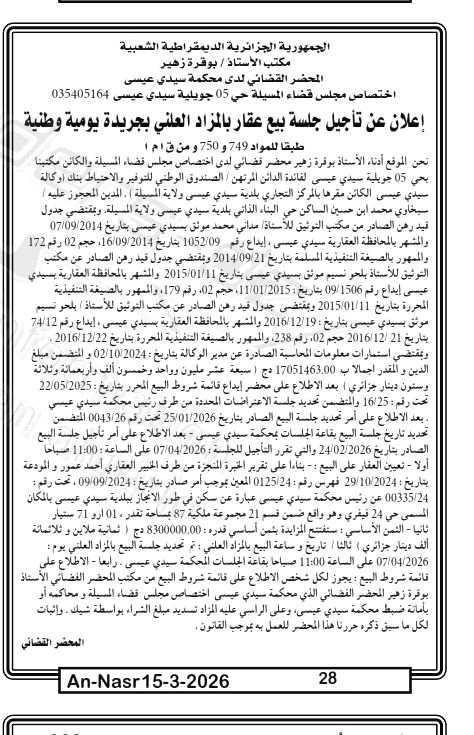 الجمهورية الجزائرية الديمقراطية الشعبية
مكتب الأستاذ / بوقرة زهير
المحضر القضائي لدى محكمة سيدي عيسى
اختصاص مجلس قضاء المسيلة حي 05 جويلية سيدي عيسى 035405164
إعلان عن تأجيل جلسة بيع عقار بالمزاد العلني بجريدة يومية وطنية
طبقا للمواد 749 و 750 و من ق ا م ا
نحن الموقع أدناه الأستاذ بوقرة زهير محضر قضائي لدى اختصاص مجلس قضاء المسيلة والكائن مكتبنا
بحي 05 جويلية سيدي عيسى لفائدة الدائن المرتهن / الصندوق الوطني للتوفير والاحتياط بنك (وكالة
سيدي عيسى الكائن مقرها بالمركز التجاري بلدية سيدي عيسى ولاية المسيلة ) . المدين المحجوز عليه /
سبخاوي محمد ابن حسين الساكن حي البناء الذاتي بلدية سيدي عيسى ولاية المسيلة. وبمقتضى جدول
قيد رهن الصادر من مكتب التوثيق للأستاذ/ مداني محمد موثق بسيدي عيسى بتاريخ 07/09/2014
والمشهر بالمحافظة العقارية سيدي عيسى ، إيداع رقم 1052/09 بتاريخ 16/09/2014، حجم 02 رقم 172
والممهور بالصيغة التنفيذية المسلمة بتاريخ 2014/09/21 وبمقتضى جدول قيد رهن الصادر عن مكتب
التوثيق للأستاذ بلحو نسيم موثق بسيدي عيسى بتاريخ 2015/01/11 والمشهر بالمحافظة العقارية بسيدي
عيسى إيداع رقم 09/1506 بتاريخ : 11/01/2015، حجم 02، رقم 179، والممهور بالصيغة التنفيذية
المحررة بتاريخ 2015/01/11 وبمقتضى جدول قيد رهن الصادر عن مكتب التوثيق للأستاذ / بلحو نسيم
موثق بسيدي عيسى بتاريخ : 2016/12/19 والمشهر بالمحافظة العقارية بسيدي عيسى ، إيداع رقم 74/12
بتاريخ 21 /2016/12 حجم 02، رقم 238، والممهور بالصيغة التنفيذية المحررة بتاريخ 2016/12/22 .
وبمقتضى استمارات معلومات المحاسبة الصادرة عن مدير الوكالة بتاريخ : 02/10/2024 و المتضمن مبلغ
الدين و المقدر اجمالا ب 17051463.00 دج ( سبعة عشر مليون وواحد وخمسون ألف وأربعمائة وثلاثة
وستون دينار جزائري ) بعد الاطلاع على محضر إيداع قائمة شروط البيع المحرر بتاريخ : 22/05/2025
تحت رقم : 16/25 والمتضمن تحديد جلسة الاعتراضات المحددة من طرف رئيس محكمة سيدي عيسى
. بعد الاطلاع على أمر تحديد جلسة البيع الصادر بتاريخ 25/01/2026 تحت رقم 0043/26 المتضمن
تحديد تاريخ جلسة البيع بقاعة الجلسات بمحكمة سيدي عيسى - بعد الاطلاع على أمر تأجيل جلسة البيع
الصادر بتاريخ 24/02/2026 والتي تقرر التأجيل للجلسة : 07/04/2026 على الساعة : 11:00 صباحا
أولا - تعيين العقار على البيع : - بناءا على تقرير الخبرة المنجزة من طرف الخبير العقاري أحمد عمور و المودعة
بتاريخ : 29/10/2024 فهرس رقم : 0125/24 المعين بموجب أمر صادر بتاريخ : 09/09/2024 ، تحت رقم :
00335/24 عن رئيس محكمة سيدي عيسى عبارة عن سكن في طور الانجاز ببلدية سيدي عيسى بالمكان
المسمى حي 24 فيفري وهو واقع ضمن قسم 21 مجموعة ملكية 87 بمساحة تقدر ، 01 ارو 71 سنتيار
ثانيا - الثمن الأساسي : ستفتتح المزايدة بثمن أساسي قدره : 8300000.00 دج ( ثمانية ملاين و ثلاثمائة
ألف دينار جزائري ) ثالثا / تاريخ و ساعة البيع بالمزاد العلني : تم تحديد جلسة البيع بالمزاد العلني يوم :
07/04/2026 على الساعة 11:00 صباحا بقاعة الجلسات المحكمة سيدي عيسى . رابعا - الاطلاع على
قائمة شروط البيع : يجوز لكل شخص الاطلاع على قائمة شروط البيع من مكتب المحضر القضائي الأستاذ
بوقرة زهير المحضر القضائي الذي محكمة سيدي عيسى اختصاص مجلس قضاء المسيلة و محاكمه أو
بأمانة ضبط محكمة سيدي عيسى، وعلى الراسي عليه المزاد تسديد مبلغ الشراء بواسطة شيك . وإثبات
لكل ما سبق ذكره حررنا هذا المحضر للعمل به بموجب القانون .
المحضر القضائي
An-Nasr 15-3-2026 28